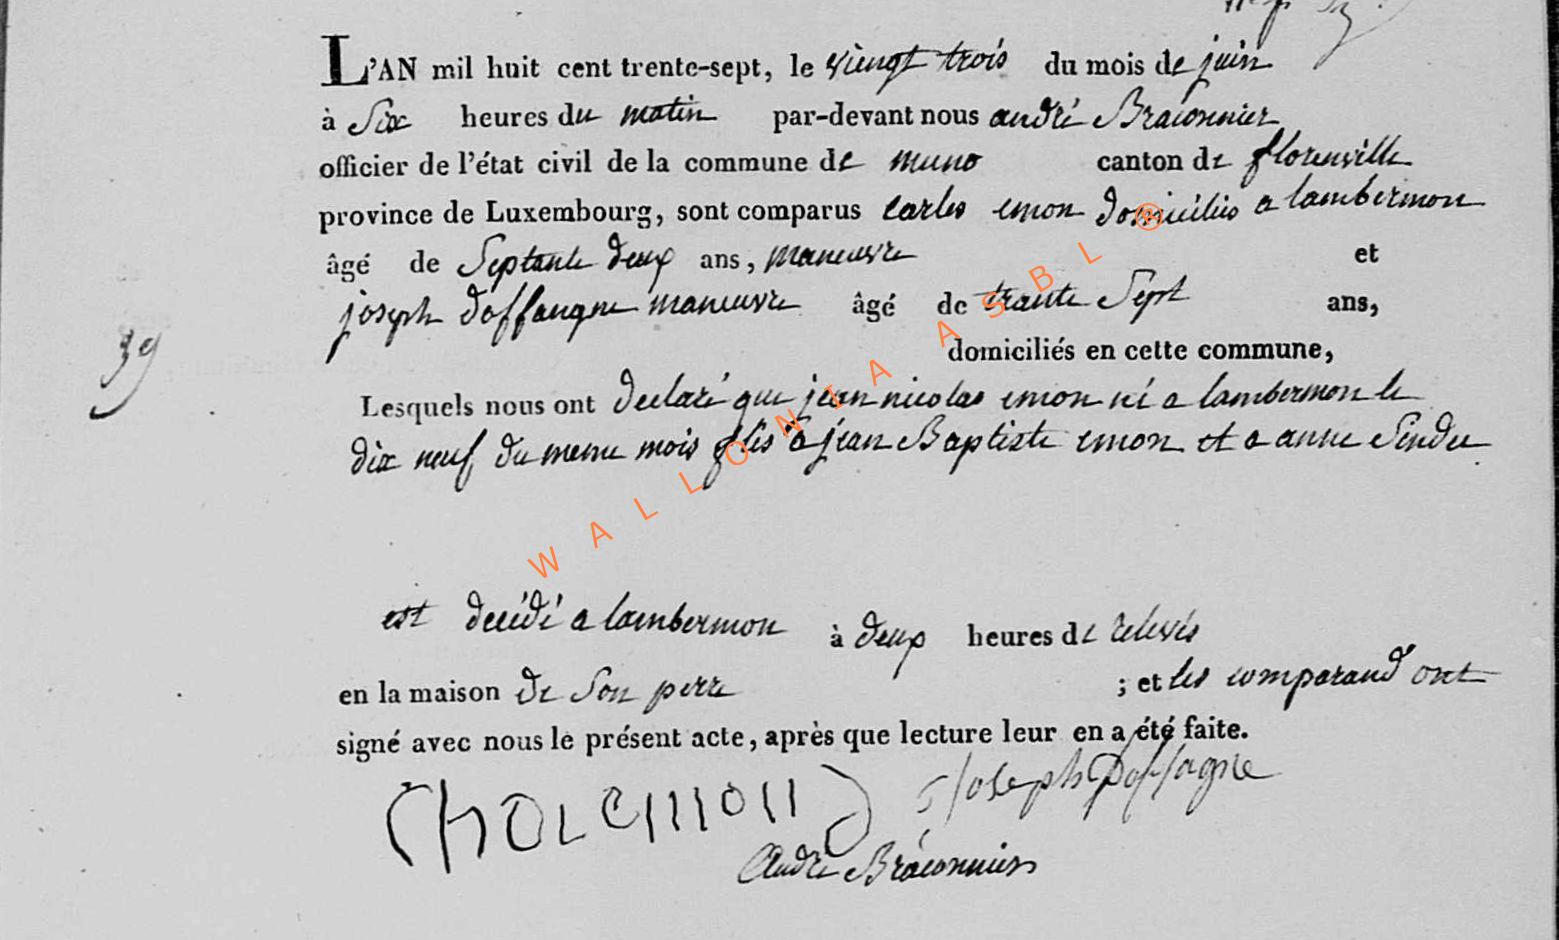 L'AN mil huit cent trente-sept, le viengt trois du mois de juin
à Six heures du matin par-devant nous andré Braconnier
officier de l'état civil de la commune de muno canton de florenville
province de Luxembourg, sont comparus Carles emon domiciliés a lambermon
âgé de Septante deux ans, maneuvre et
joseph doffangne maneuvre âgé de trante Sept ans,
domiciliés en cette commune,
39
Lesquels nous ont declaré que jean nicolas emon né a lambermon le
dix neuf du meme mois flis a jean Baptiste emon et a anne
est decédé a lambermon à deux heures de relevés
en la maison de Son perre ; et les comparand ont
signé avec nous le présent acte, après que lecture leur en a été faite.
Joseph Doffagne
André Braconnier
WALLONIA ASBL ®